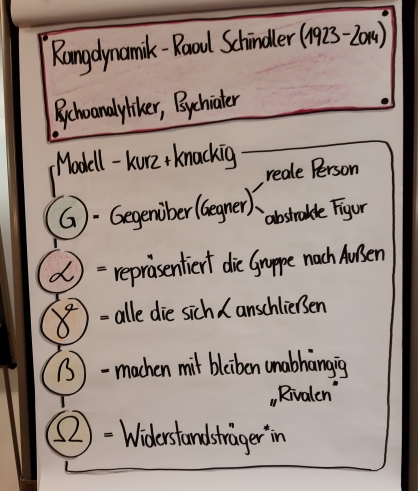 Rangdynamik - Raoul Schindler (1923-2014)
Psychoanalytiker, Psychiater
Modell - kurz + knackig
G - Gegenüber (Gegner)
reale Person
abstrakte Figur
α = repräsentiert die Gruppe nach Außen
γ = alle die sich α anschließen
β - machen mit bleiben unabhängig
„Rivalen"
Ω = Widerstandsträger*in